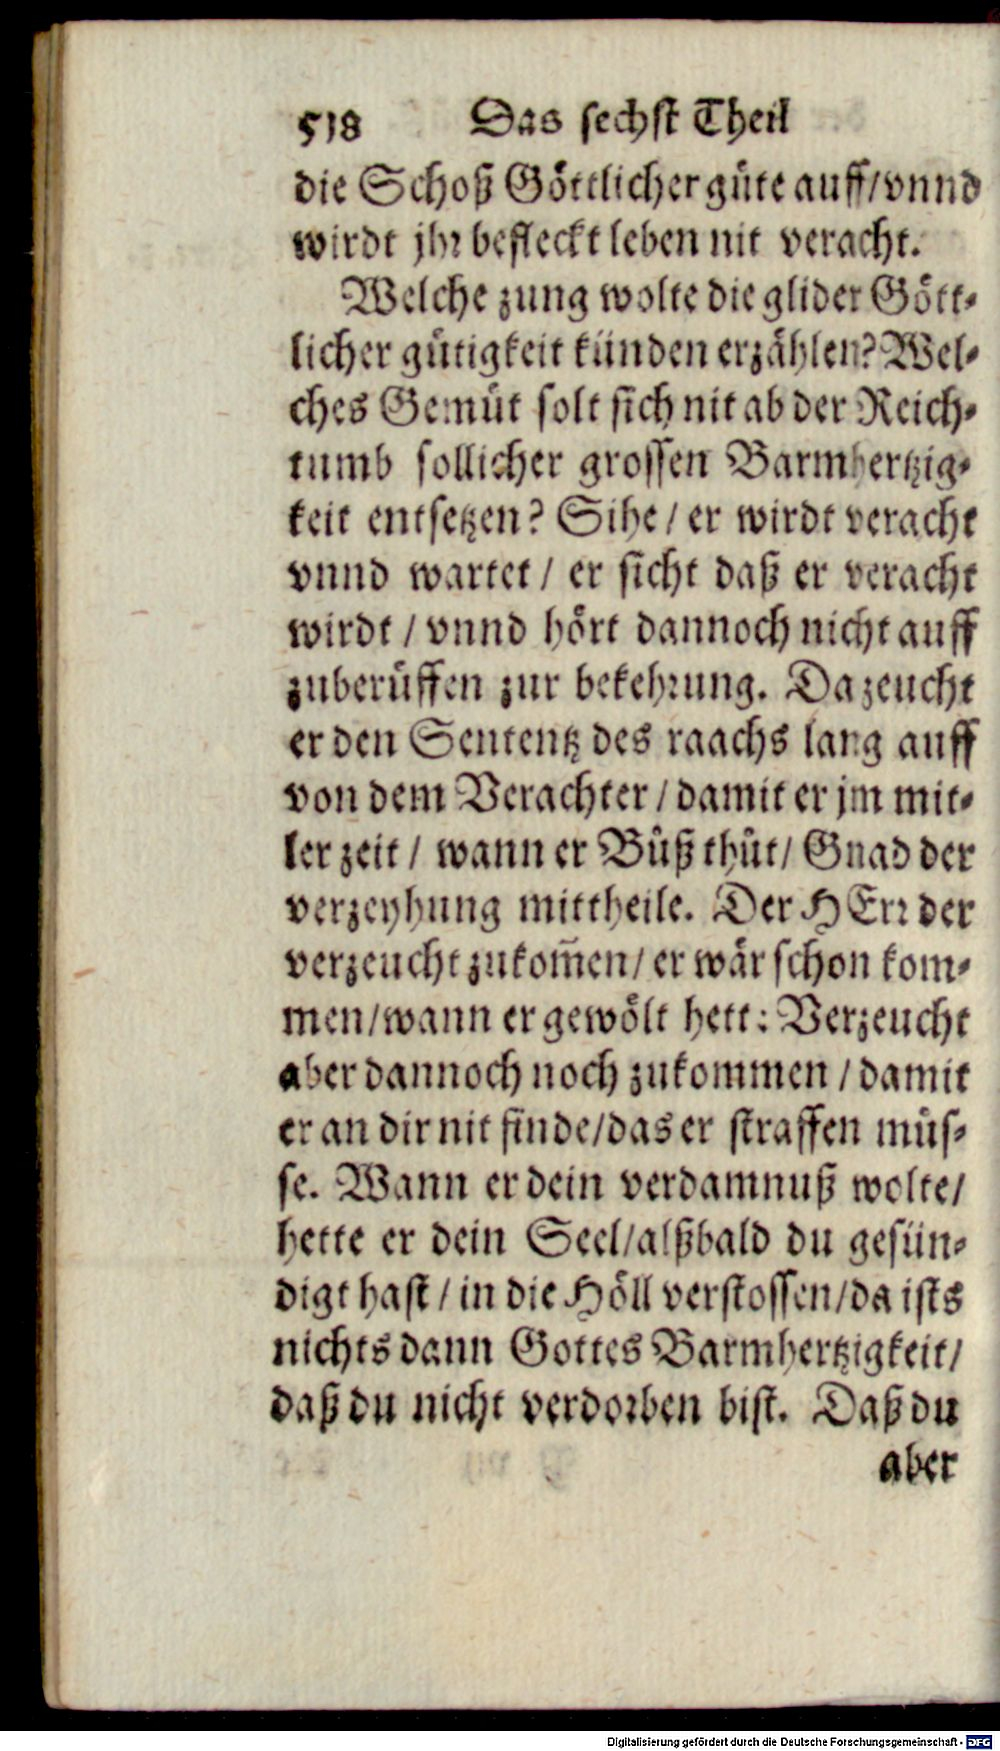 518 Das sechst Theil
die Schoß Göttlicher güte auff/vnnd
wirdt jhr befleckt leben nit veracht.
Welche zung wolte die glider Gött-
licher gütigkeit künden erzählen? Wel-
ches Gemüt solt sich nit ab der Reich-
tumb sollicher grossen Barmhertzig-
keit entsetzen? Sihe / er wirdt veracht
vnnd wartet / er sicht daß er veracht
wirdt / vnnd hört dannoch nicht auff
zuberüffen zur bekehrung. Da zeucht
er den Sententz des raachs lang auff
von dem Verachter / damit er jm mit-
ler zeit / wann er Büß thüt/ Gnad der
verzeyhung mittheile. Der HErr der
verzeucht zukom̃en/ er wär schon kom-
men/wann er gewölt hett: Verzeucht
aber dannoch noch zukommen / damit
er an dir nit finde/das er straffen müs-
se. Wann er dein verdamnuß wolte/
hette er dein Seel/alßbald du gesün-
digt hast / in die Höll verstossen/da ists
nichts dann Gottes Barmhertzigkeit/
daß du nicht verdorben bist. Daß du
aber
Digitalisierung gefördert durch die Deutsche Forschungsgemeinschaft - DFG